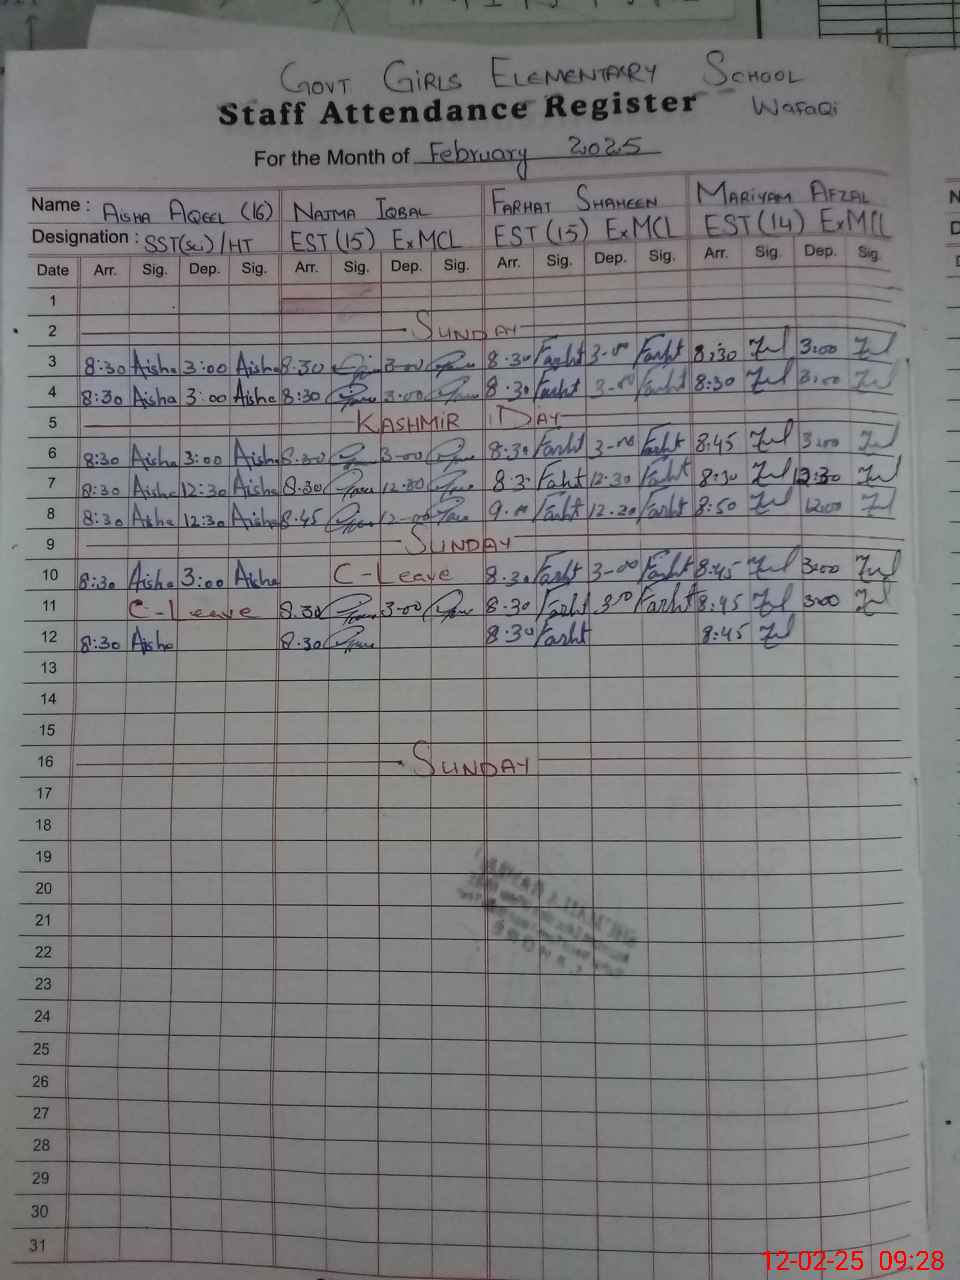 GOVT GIRLS ELEMENTARY SCHOOL
Staff Attendance Register WAFAQi
For the Month of February 2025
Name : AISHA AQEEL (16) NAJMA IQBAL FARHAT SHAHEEN MARIYAM AFZAL
Designation : SST(sci)/HT EST (15) ExMCL EST (15) ExMCL EST (14) ExMCL
Date Arr. Sig. Dep. Sig. Arr. Sig. Dep. Sig. Arr. Sig. Dep. Sig. Arr. Sig. Dep. Sig.
1
2 SUNDAY
3 8:30 Aisha 3:00 Aisha 8:30 3-00 8:30 Farht 3-00 Farht 8:30 3:00
4 8:30 Aisha 3:00 Aisha 8:30 3-00 8:30 Farht 3-00 Farht 8:30 3:00
5 KASHMIR DAY
6 8:30 Aisha 3:00 Aisha 8:30 3-00 8:30 Farht 3-00 Farht 8:45 3:00
7 8:30 Aisha 12:30 Aisha 8:30 12:30 8:3 Faht 12:30 Farht 8:30 12:30
8 8:30 Aisha 12:30 Aisha 8:45 12-00 9.00 Farht 12:20 Farht 8:50 12:00
9 SUNDAY
10 8:30 Aisha 3:00 Aisha C-Leave 8:30 Farht 3-00 Farht 8:45 3:00
11 C-Leave 8:30 3-00 8:30 Farht 3:00 Farht 8:45 3:00
12 8:30 Aisha 8:30 8:30 Farht 8:45
13
14
15
16 SUNDAY
17
18
19
20
21
22
23
24
25
26
27
28
29
30
31
12-02-25 09:28